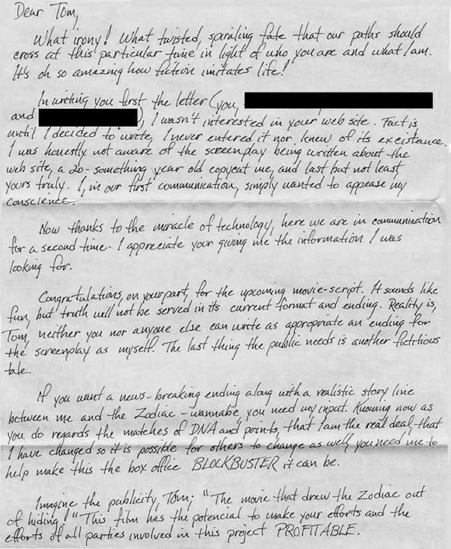 Dear Tom,
What irony! What twisted, spiraling fate that our paths should
cross at this particular time in light of who you are and what I am.
It's oh so amazing how fiction imitates life!
In writing you first the letter (you,
and , I wasn't interested in your web site. Fact is
until I decided to write, I never entered it nor knew of its excistance.
I was honestly not aware of the screenplay being written about the
web site, a 20-something year old copycat me, and last but not least
yours truly. I, in our first communication, simply wanted to appease my
conscience.
Now thanks to the miracle of technology, here we are in communication
for a second time. I appreciate your giving me the information I was
looking for.
Congratulations, on your part, for the upcoming movie-script. It sounds like
fun, but truth will not be served in its current format and ending. Reality is,
Tom, neither you nor anyone else can write as appropriate an ending for
the screenplay as myself. The last thing the public needs is another fictitious
tale.
If you want a news-breaking ending along with a realistic story line
between me and the Zodiac-wannabe, you need my input. Knowing now as
you do regards the matches of DNA and prints, that I am the real deal, that
I have changed so it is possible for others to change as well, you need me to
help make this the box office BLOCKBUSTER it can be.
Imagine the publicity, Tom; "The movie that drew the Zodiac out
of hiding!" This film has the potencial to make your efforts and the
efforts of all parties involved in this project PROFITABLE.